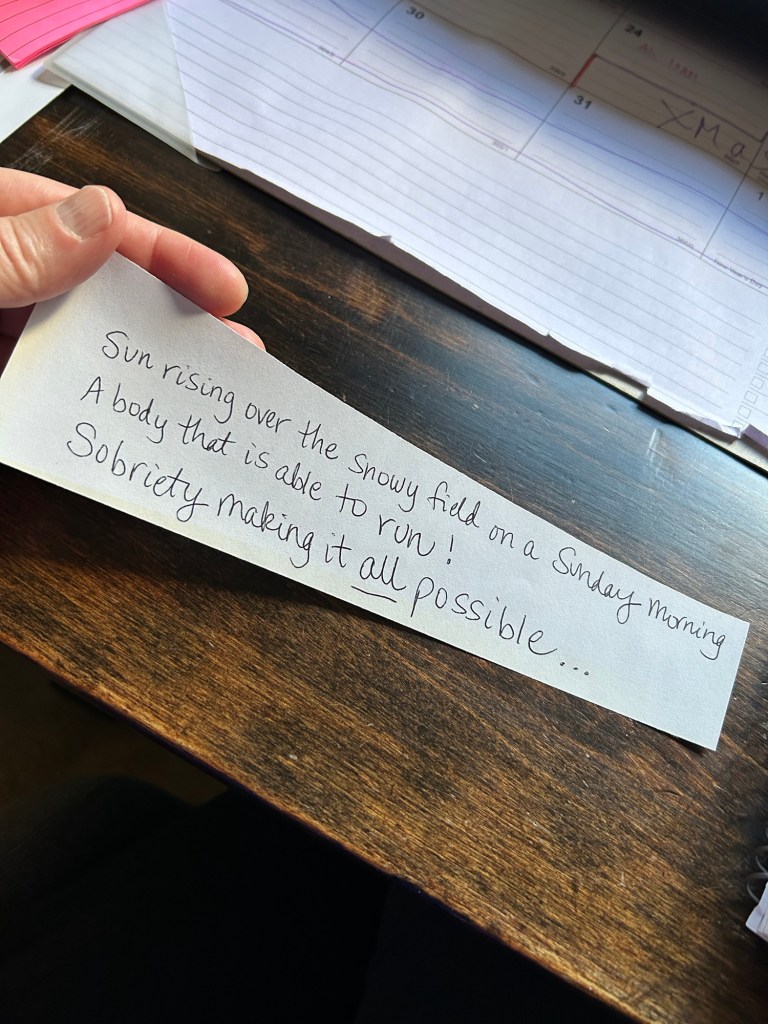 30
24
31
XMas
1
Sun rising over the snowy field on a Sunday morning
A body that is able to run!
Sobriety making it all possible...